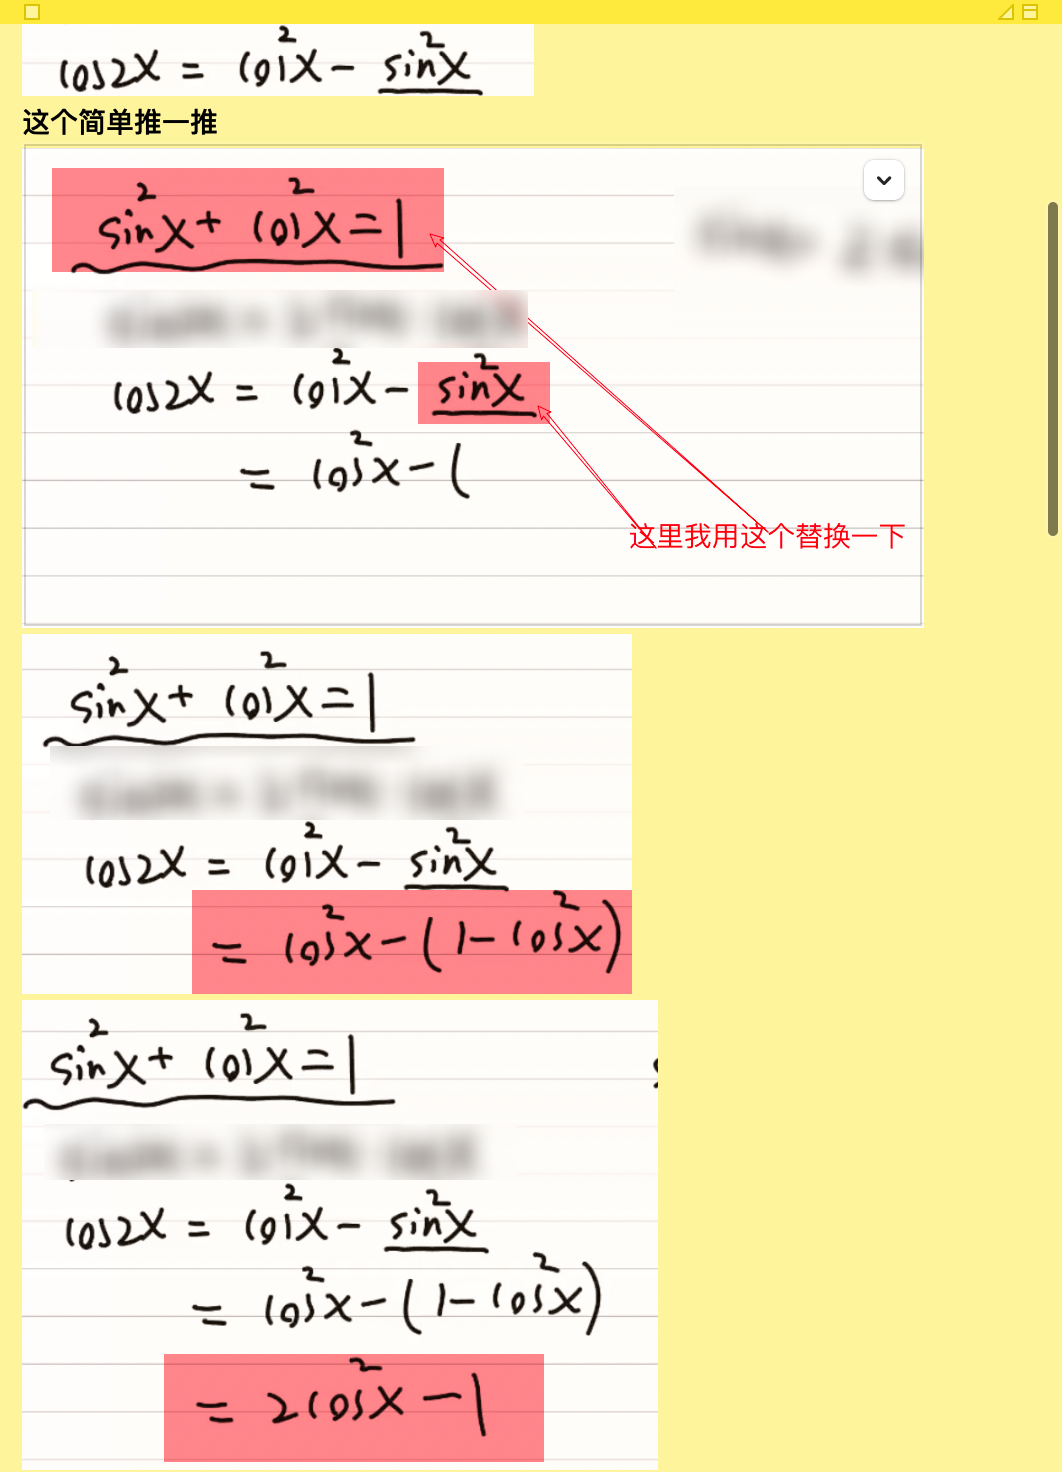 cos2x = cos²x - sin²x
这个简单推一推
sin²x + cos²x = 1
cos2x = cos²x - sin²x
= cos²x - (
这里我用这个替换一下
sin²x + cos²x = 1
cos2x = cos²x - sin²x
= cos²x - (1 - cos²x)
sin²x + cos²x = 1
cos2x = cos²x - sin²x
= cos²x - (1 - cos²x)
= 2cos²x - 1